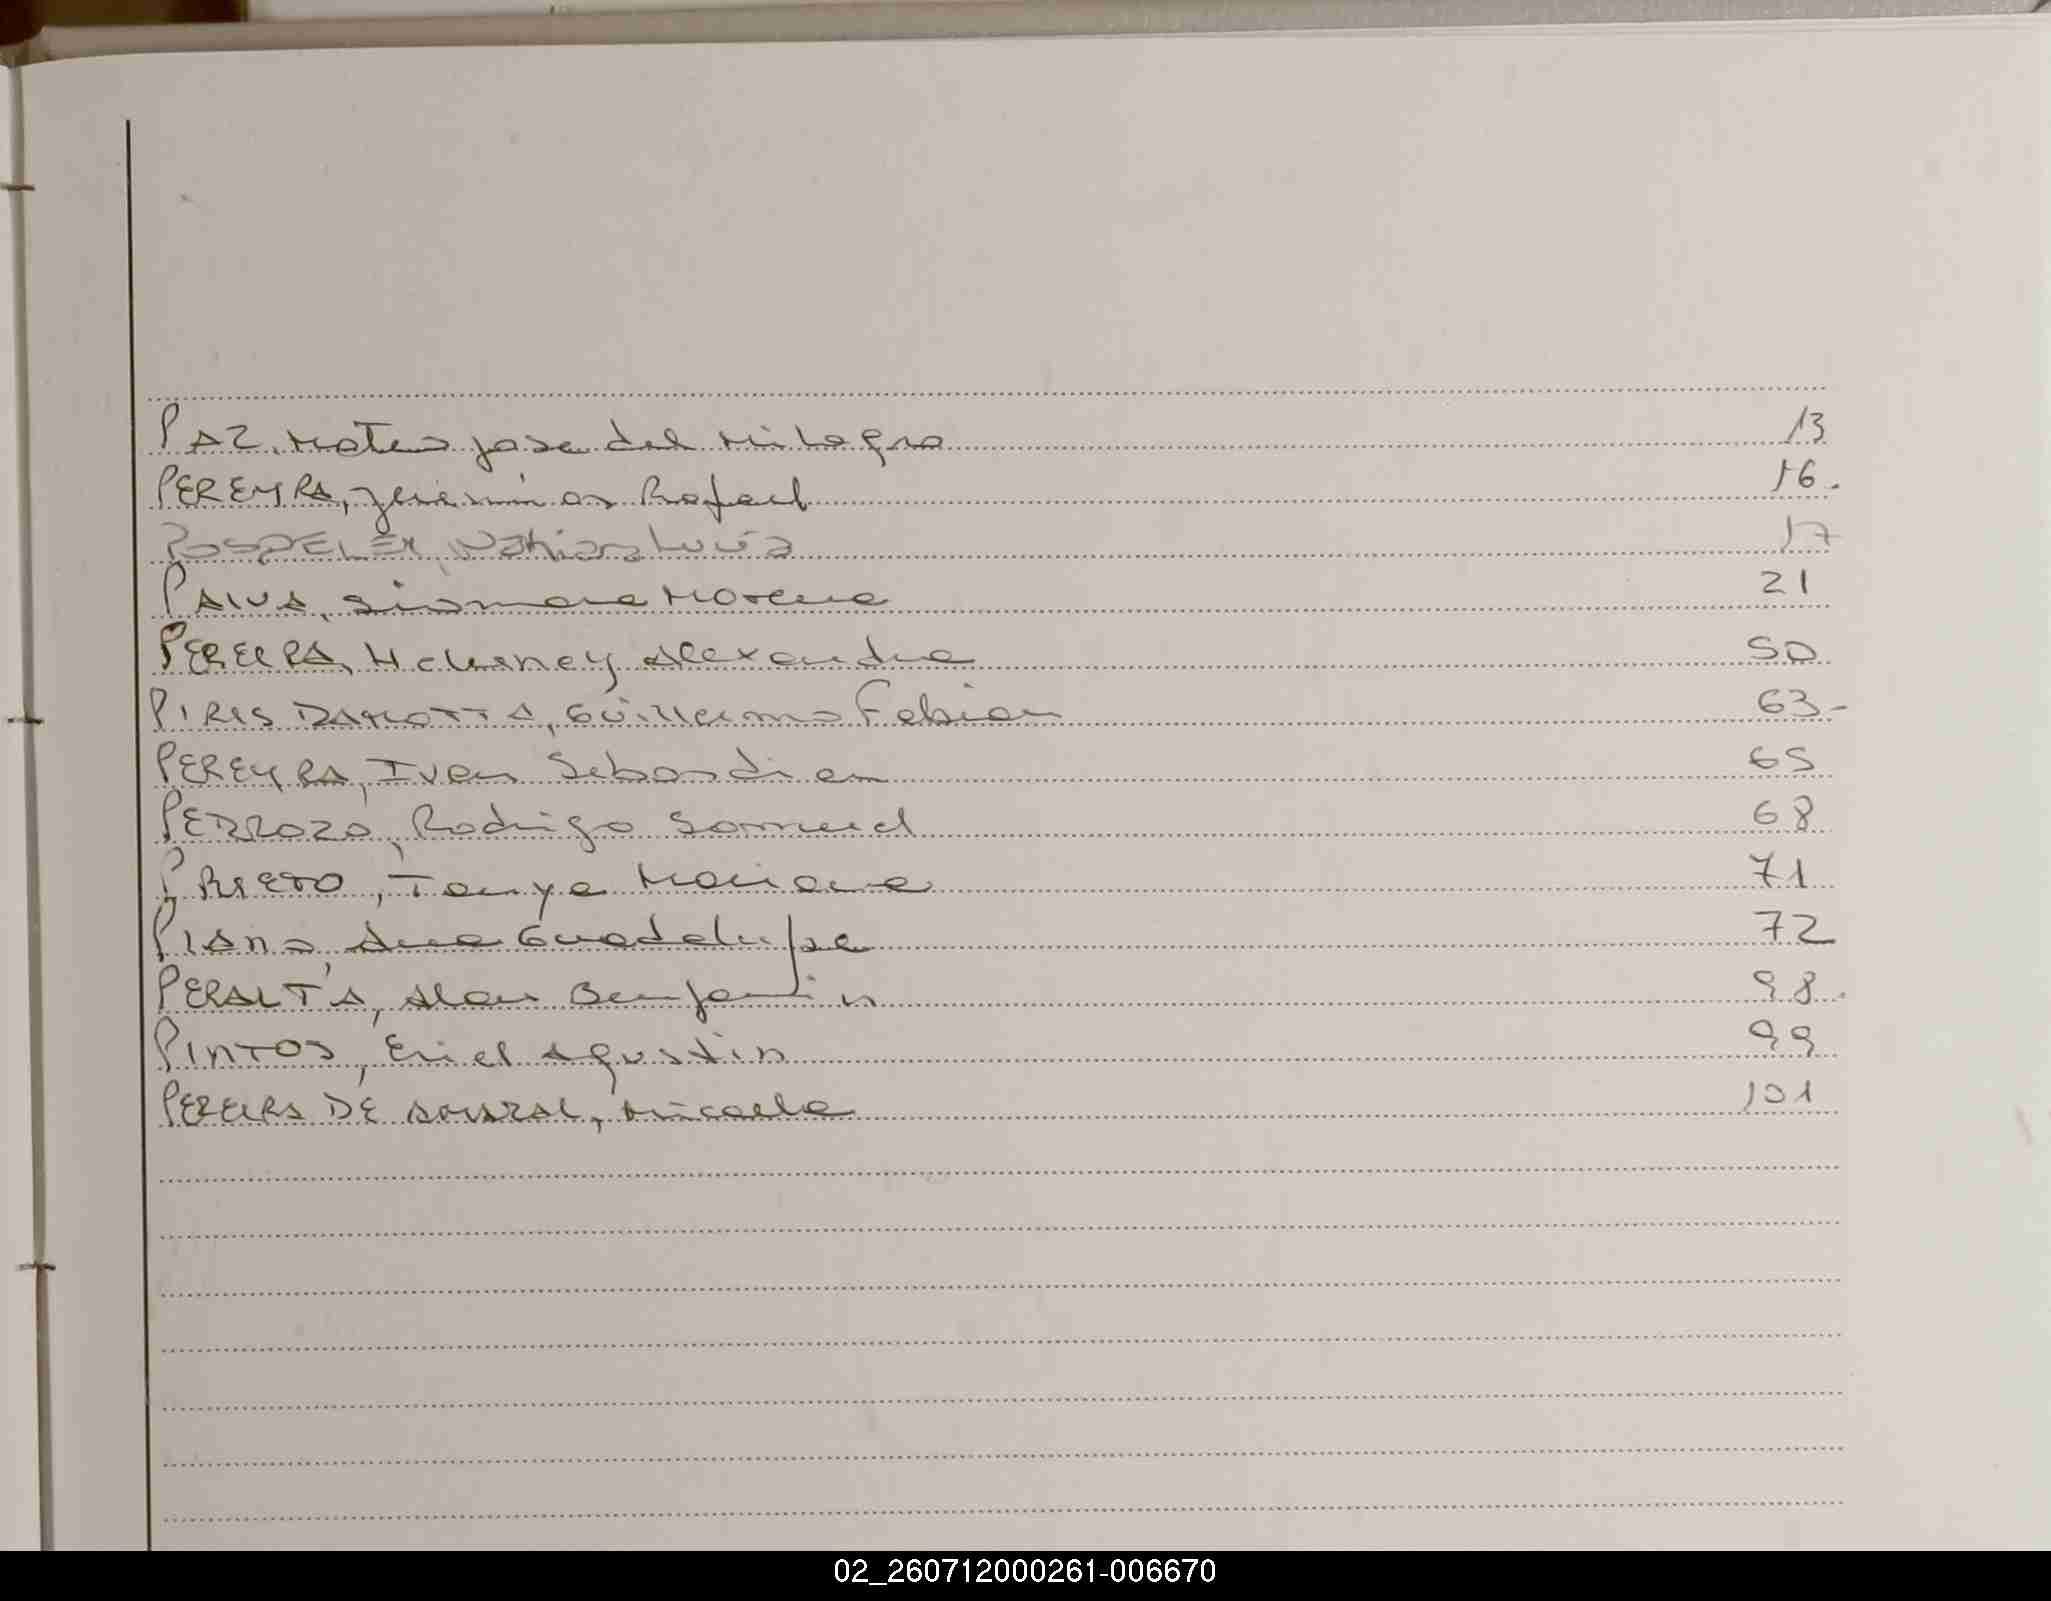 PAZ, Mateo jose del Milagro 13
PEREYRA, Jeremías Rafael 16.
Lucía 17
PAIVA, Siomara Morena 21
PEREIRA, Alexandra 50
PIRIS DAMOTTA, Guillermo Fabian 63-
PEREYRA, Ivan Sebastian 65
PEDROZO, Rodrigo Samuel 68
PRIETO, Tanya Mariana 71
PIANO, Ana Guadalupe 72
PERALTA, Alan Benjamin 98.
PINTOS, Eriel Agustin 99
PEREIRA DE AMARAL, Micaela 101
02_260712000261-006670